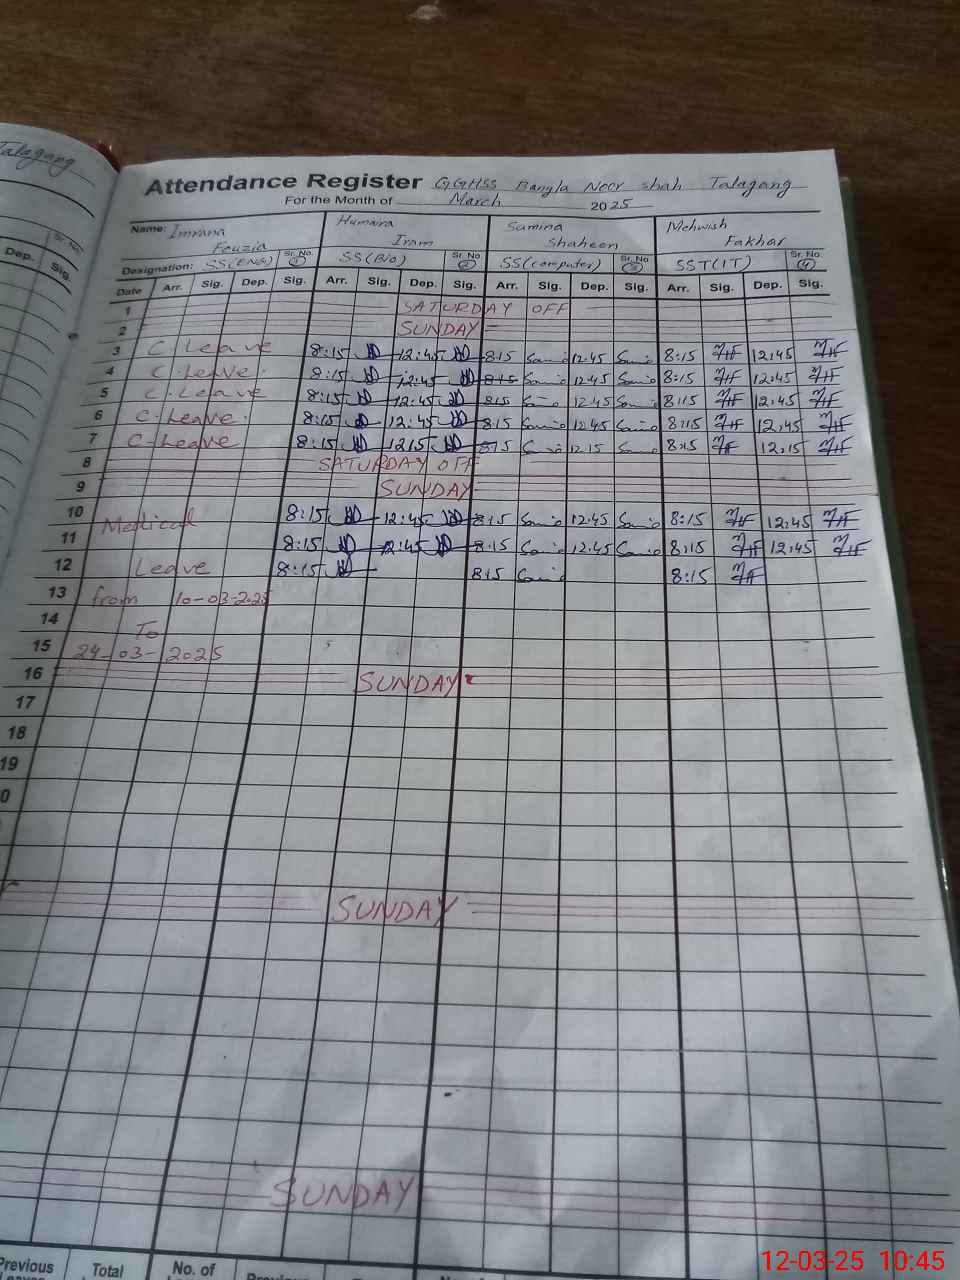 Talagang
Sr. No.
Dep. Sig.
Attendance Register GGHSS Bangla Noor Shah Talagang
For the Month of March 2025
Name: Imrana Fouzia Humaira Iram Samina Shaheen Mehwish Fakhar
Designation: SS(ENG) Sr. No. 1 SS(Bio) Sr. No. 2 SS(computer) Sr. No. 3 SST(IT) Sr. No. 4
Date Arr. Sig. Dep. Sig. Arr. Sig. Dep. Sig. Arr. Sig. Dep. Sig. Arr. Sig. Dep. Sig.
1 SATURDAY OFF
2 SUNDAY
3 C Leave 8:15 12:45 8:15 Samia 12:45 Samia 8:15 MF 12:45 MF
4 C. Leave. 8:15 12:45 8:15 Samia 12:45 Samia 8:15 MF 12:45 MF
5 C. Leave 8:15 12:45 8:15 Samia 12:45 Samia 8:15 MF 12:45 MF
6 C. Leave. 8:15 12:45 8:15 Samia 12:45 Samia 8:15 MF 12:45 MF
7 C-Leave 8:15 12:15 8:15 Samia 12:15 Samia 8:15 MF 12:15 MF
8 SATURDAY OFF
9 SUNDAY
10 Medical 8:15 12:45 8:15 Samia 12:45 Samia 8:15 MF 12:45 MF
11 8:15 12:45 8:15 Samia 12:45 Samia 8:15 MF 12:45 MF
12 Leave 8:15 8:15 Samia 8:15 MF
13 from 10-03-2025
14 To
15 24-03-2025
16 SUNDAY
17
18
19
0
SUNDAY
SUNDAY
Previous Total No. of Previous
12-03-25 10:45